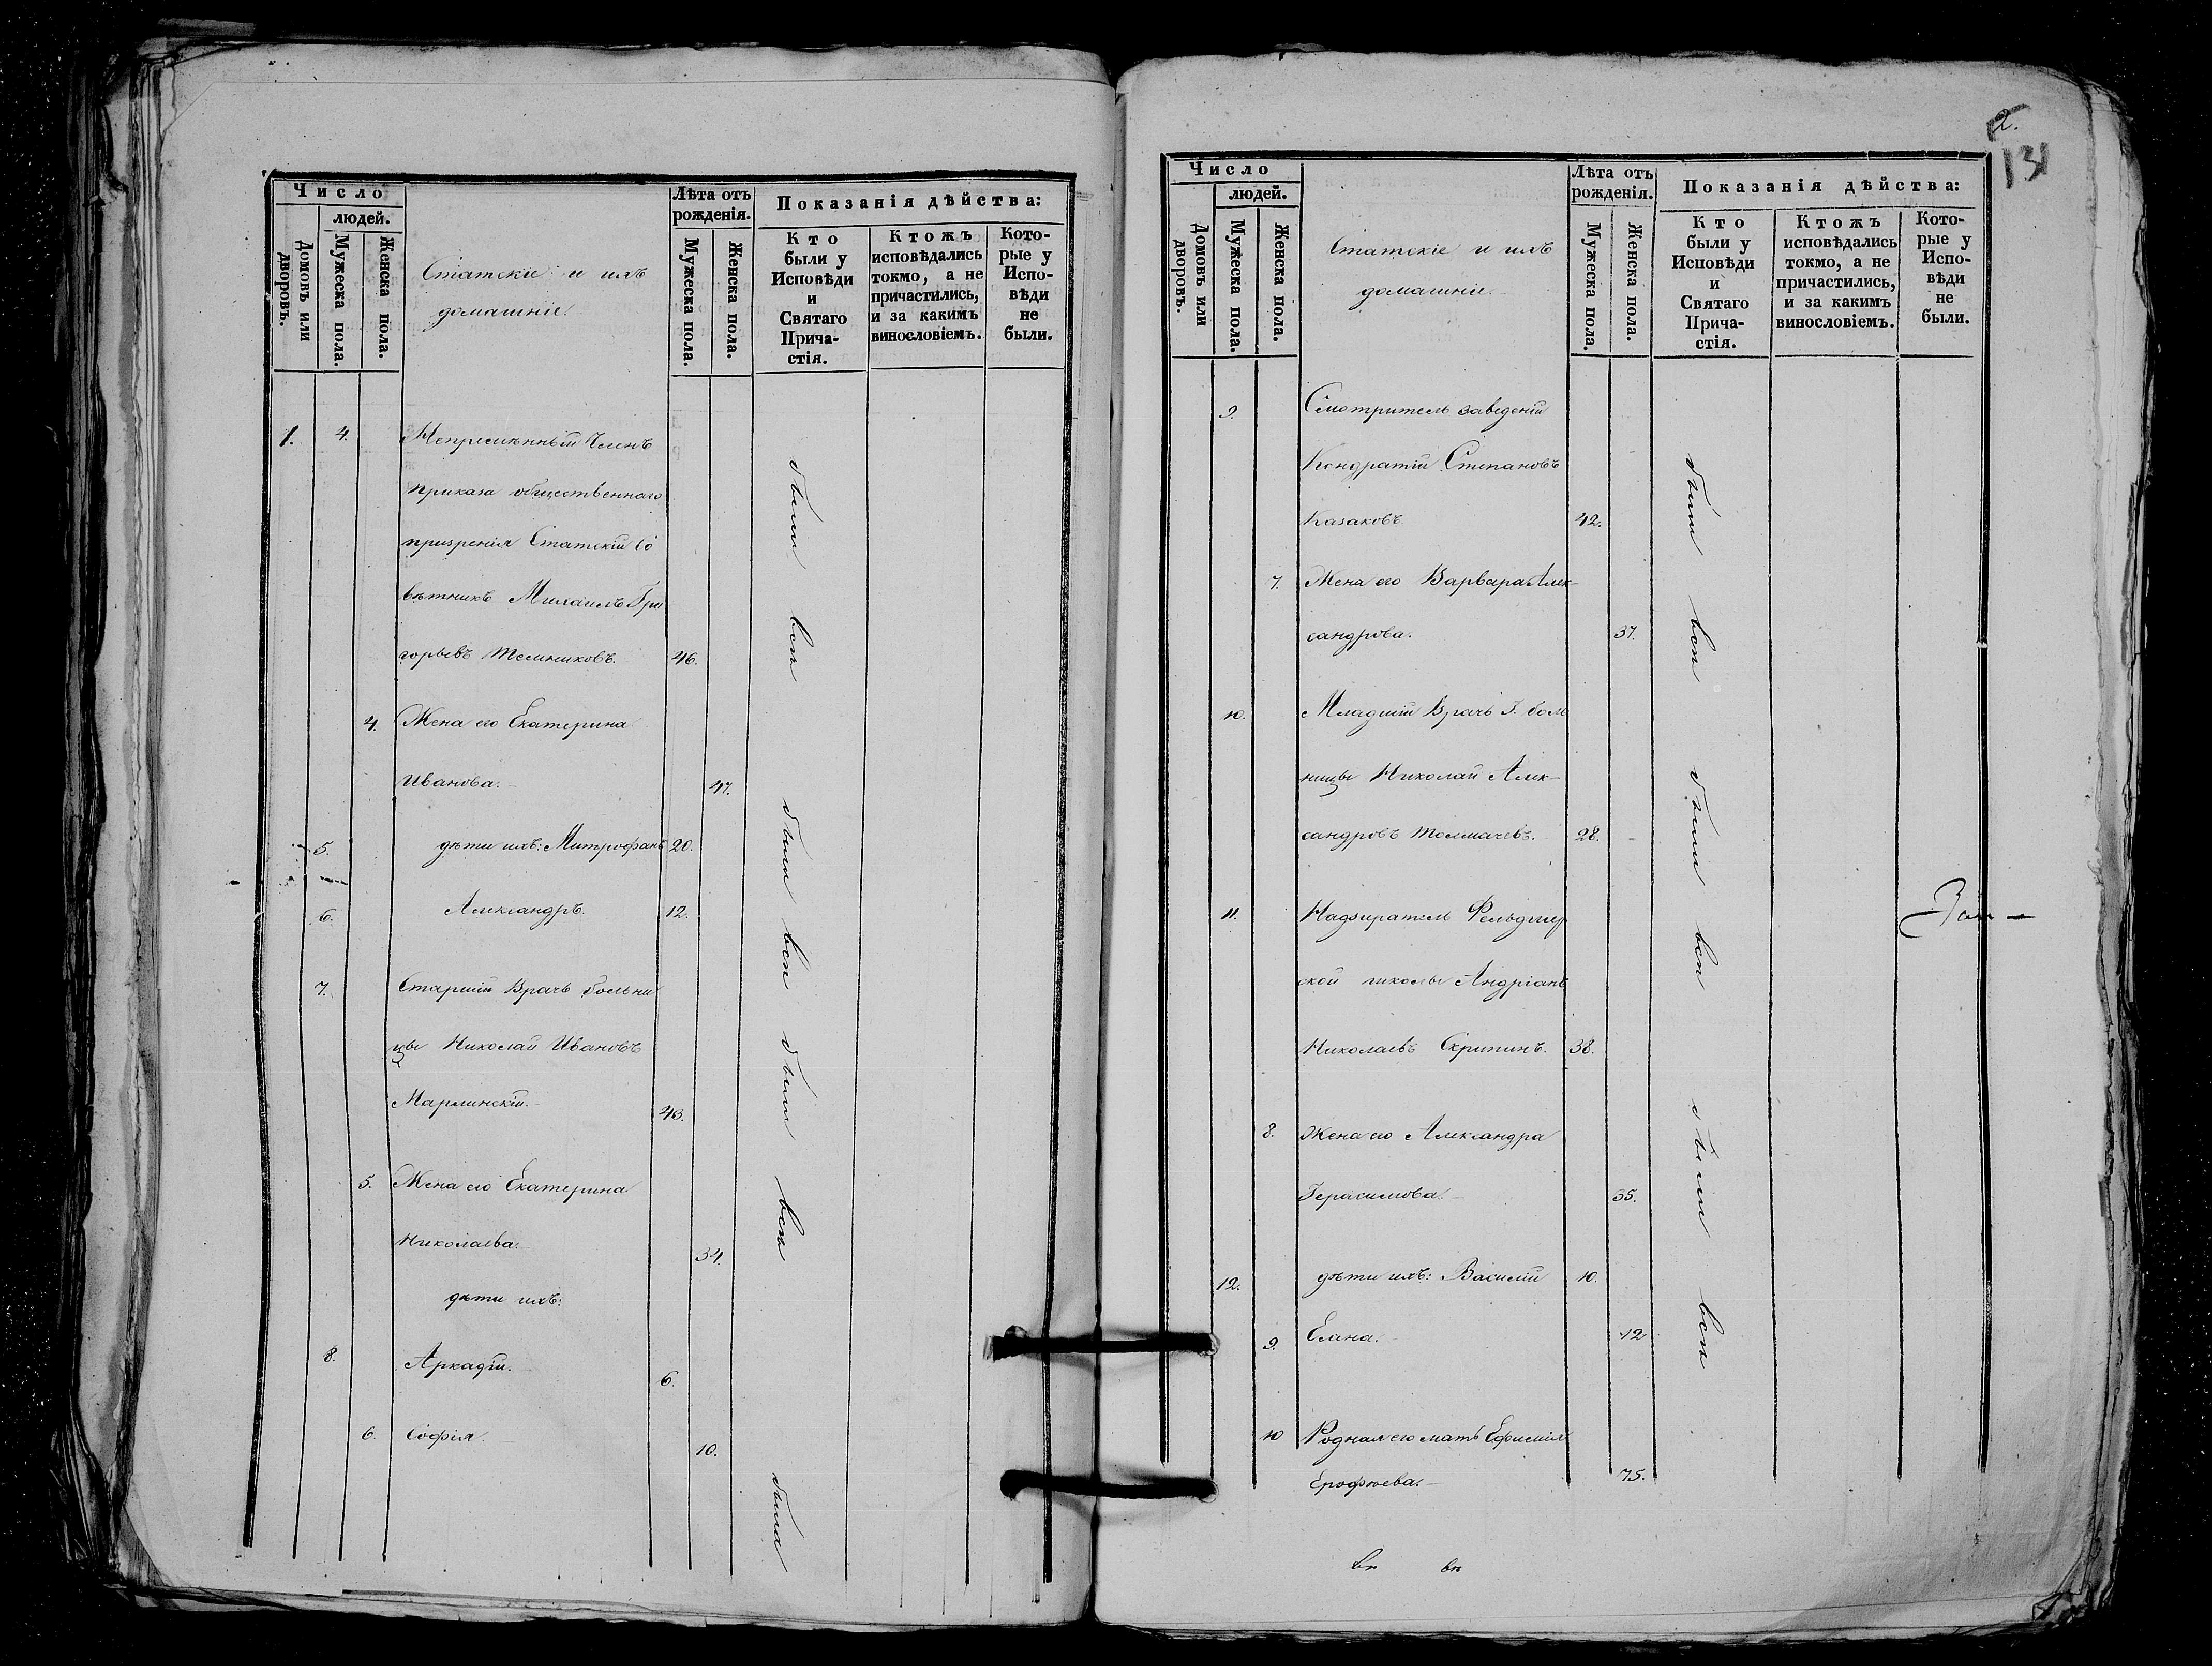 Число
людей.
Домовъ или дворовъ.
Мужеска пола.
Женска пола.
Статскіе и ихъ
домашніе.
Лѣта отъ
рожденія.
Мужеска пола.
Женска пола.
Показанія дѣйства:
Кто
были у
Исповѣди
и
Святаго
Прича-
стія.
Ктожъ
исповѣдались
токмо, а не
причастились,
и за какимъ
винословіемъ.
Кото-
рые у
Испо-
вѣди
не
были.
1. 4. Непремѣнный Членъ
приказа общественнаго
призренія Статскій Со
вѣтникъ Михаилъ Гри
горьевъ Мельниковъ. 46.
4. Жена его Екатерина
Иванова. 47.
5. дѣти ихъ: Митрофанъ 20.
6. Александръ. 12.
7. Старшій Врачъ больни
цы Николай Ивановъ
Марлинскій. 40.
5. Жена его Екатерина
Николаева. 34.
дѣти ихъ:
8. Аркадій. 6.
6. Софія. 10.
были всѣ
были всѣ
были всѣ
была
2.
131
Число
людей.
Домовъ или дворовъ.
Мужеска пола.
Женска пола.
Статскіе и ихъ
домашніе.
Лѣта отъ
рожденія.
Мужеска пола.
Женска пола.
Показанія дѣйства:
Кто
были у
Исповѣди
и
Святаго
Прича-
стія.
Ктожъ
исповѣдались
токмо, а не
причастились,
и за какимъ
винословіемъ.
Кото-
рые у
Испо-
вѣди
не
были.
9. Смотритель заведеній
Кондратій Степановъ
Казаковъ 42.
7. Жена его Варвара Алек-
сандрова. 37.
10. Младшій Врачъ Г. боль
ницы Николай Алек-
сандровъ Толмачевъ. 28.
11. Надзиратель Фельдшер
ской школы Андріанъ
Николаевъ Скрипинъ. 38.
8. Жена его Александра
Герасимова. 35.
12. дѣти ихъ: Василій 10.
9. Елена. 12
10 Родная его мать Ефимія
Ерофѣева. 75.
были всѣ
были всѣ
были всѣ